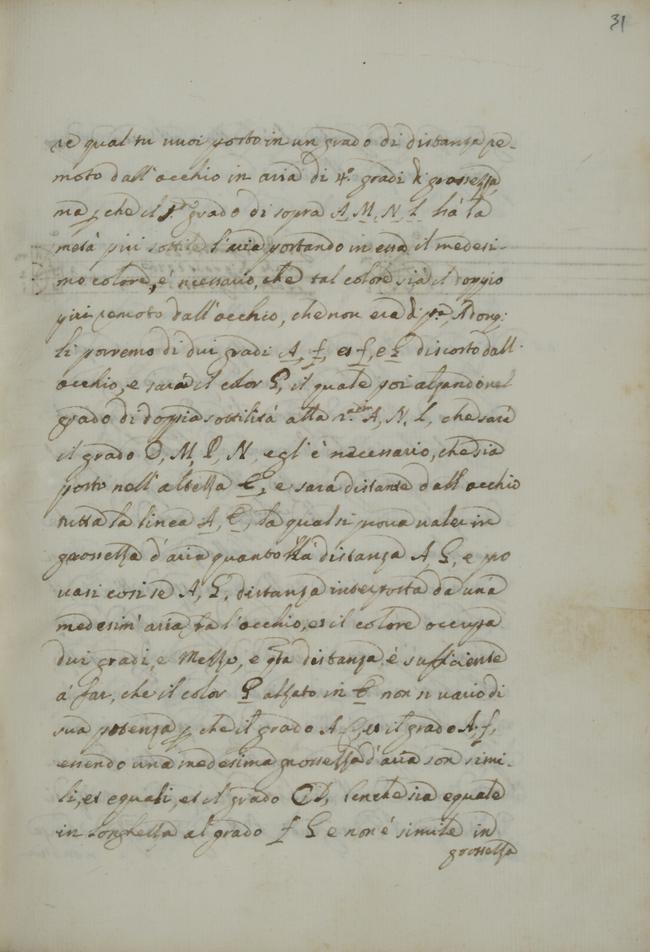 31
re qual tu vuoi posto in un grado di distanza re-
moto dall'occhio in aria di 4.º gradi di grossezza,
ma p. che il p.º grado di sopra A, M, N, L há la
metà piú sottile l'aria portando in essa il medesi-
mo colore, e' necessario, che tal colore sia il doppio
piú remoto dall'occhio, che non era di p.ª, Adonq:
li porremo di dui gradi A, f, et f, e G discosto dall'
occhio, e sará il color G, il quale poi alzandonel
grado di doppia sottilitá alla A, N, L, che sará
il grado O, M, P, N, egl'è necessario, che sia
posto nell'altezza E, e sará distante dall'occhio
tutta la linea A, E, la qual si prova valer in
grossezza d'aria quanto la distanza A, G, e pro
vasi cosi se A, G, distanza interposta da una
medesim' aria trà l'occhio, et il colore occupa
dui gradi, e Mezzo, e qta distanza è sufficiente
á far, che il color G alzato in E non si varij di
sua potenza p. che il grado et il grado A, f,
essendo una medesima grossezza d'aria son simi-
li, et equali, et il grado benche sia equale
in longhezza al grado f G e non é simile in
grossezza